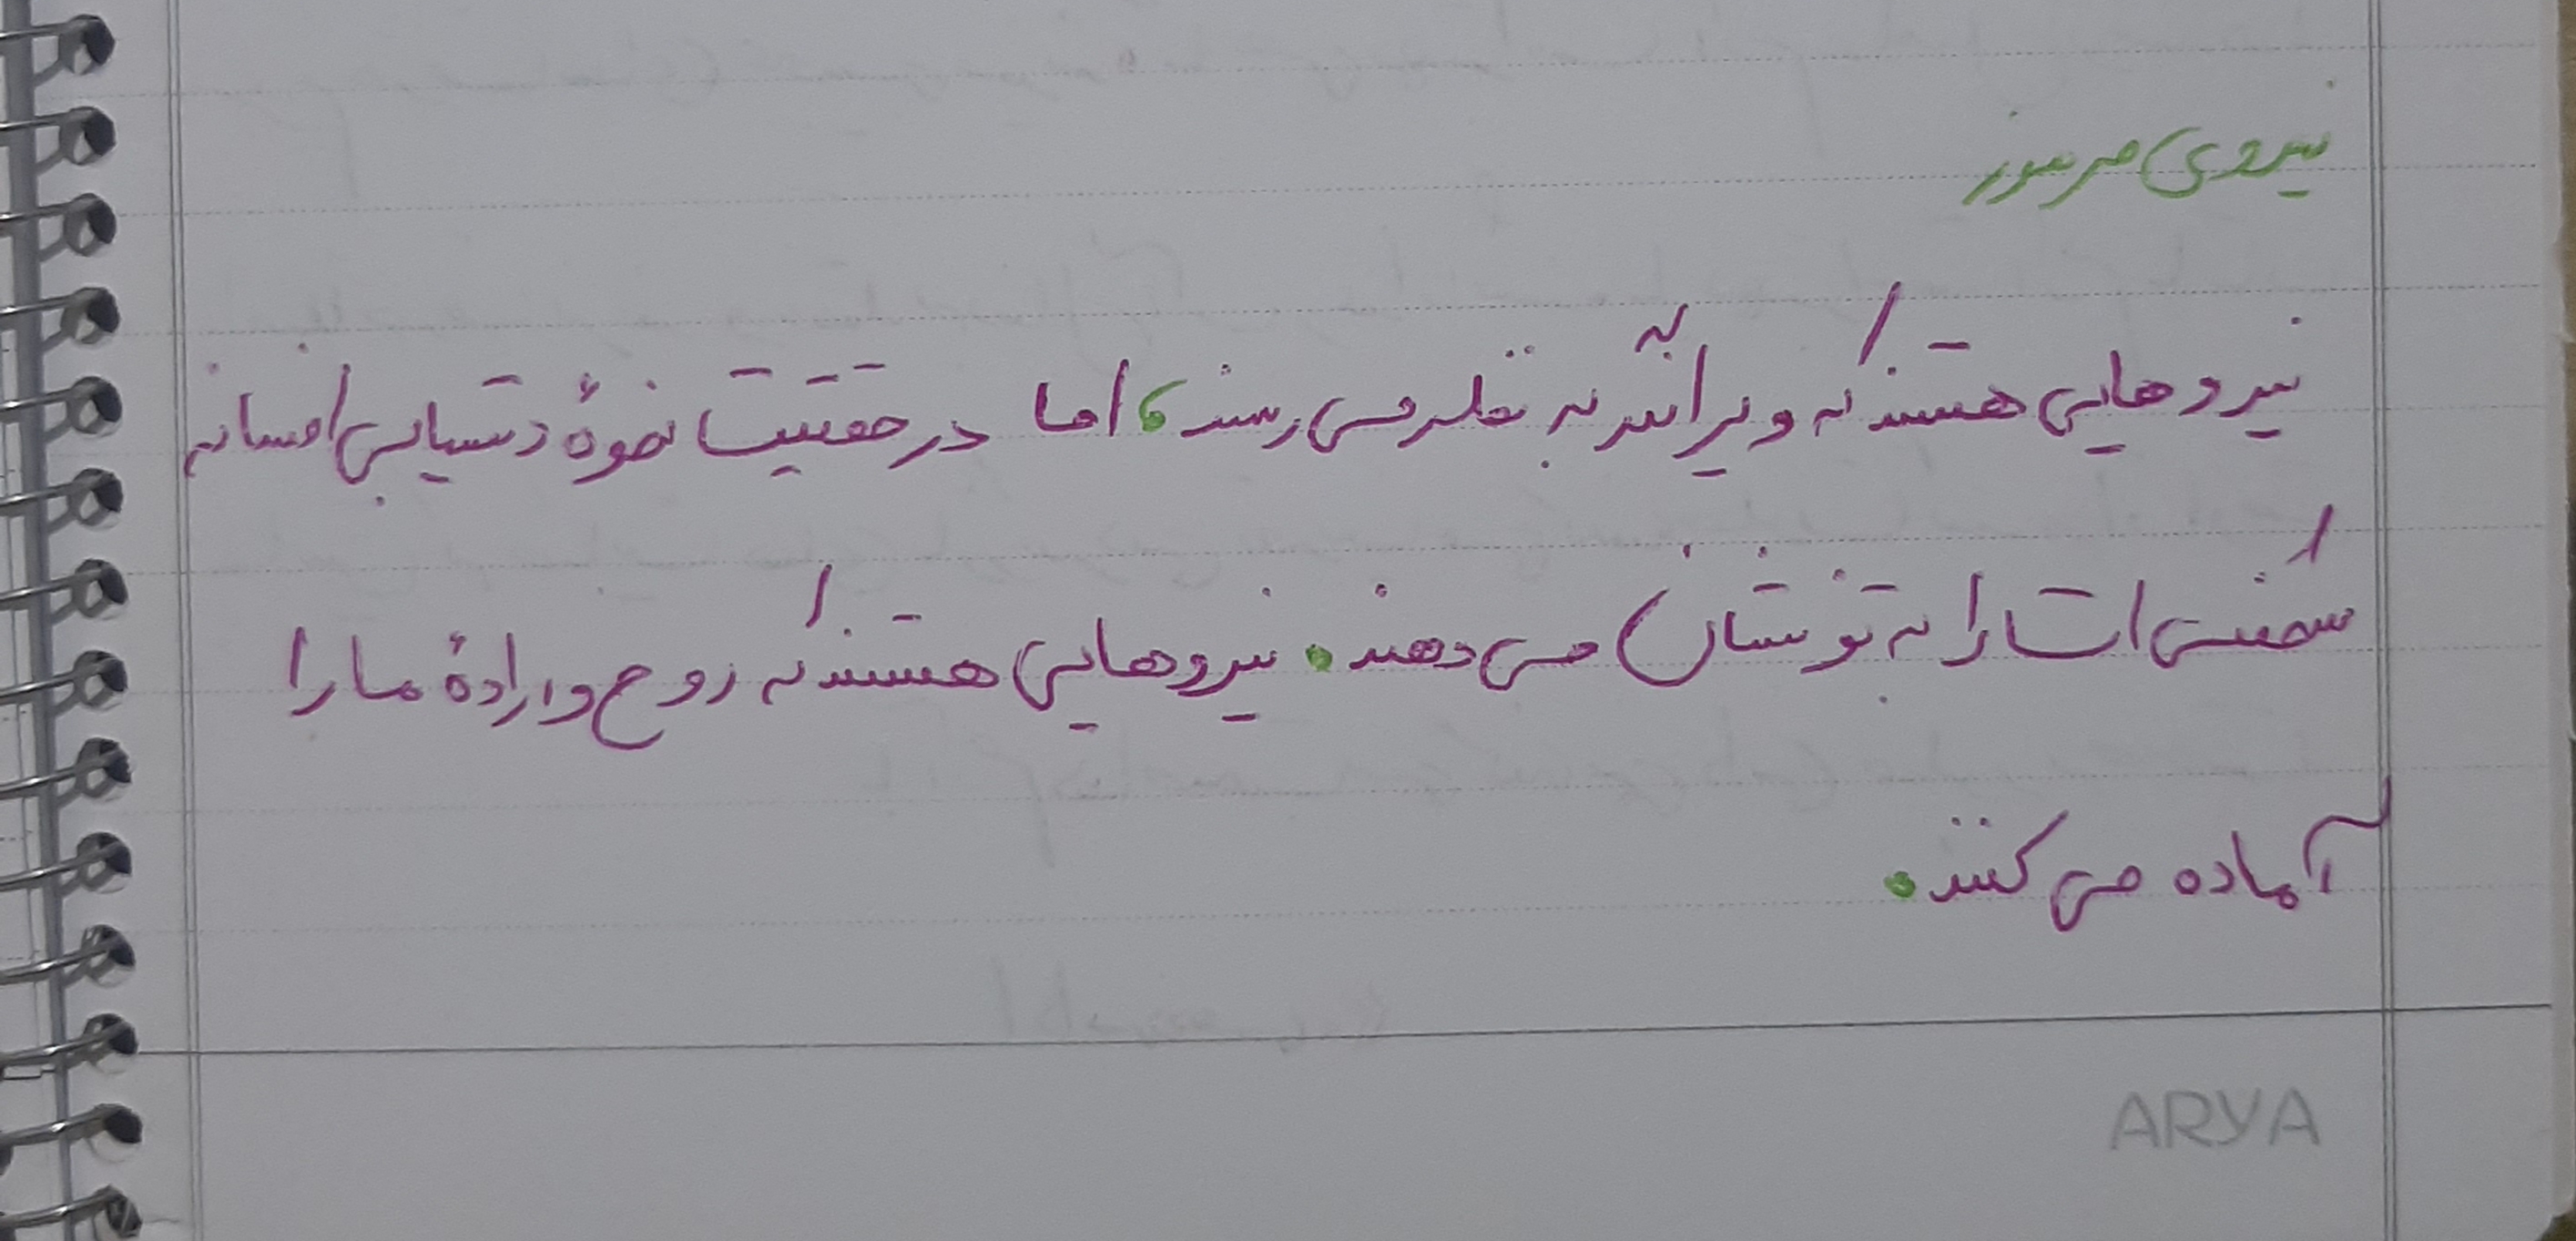 نیروی مرموز
نیروهایی هستند که ویرانگر به نظر می‌رسند، اما در حقیقت نحوهٔ دستیابی افسانه
شخصی‌ات را به تو نشان می‌دهند. نیروهایی هستند که روح و ارادهٔ ما را
آماده می‌کنند.
ARYA